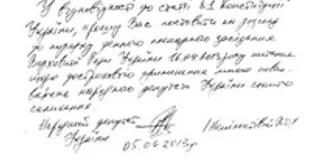 У відповідності до статті 81 Конституції
України, прошу Вас поставити на розгляд
до порядку денного пленарного засідання
Верховної Ради України 16.04 2013 року питання
щодо дострокового припинення мною повно-
важень народного депутата України сьомого
скликання.
Народний депутат
України
05.04.2013р.